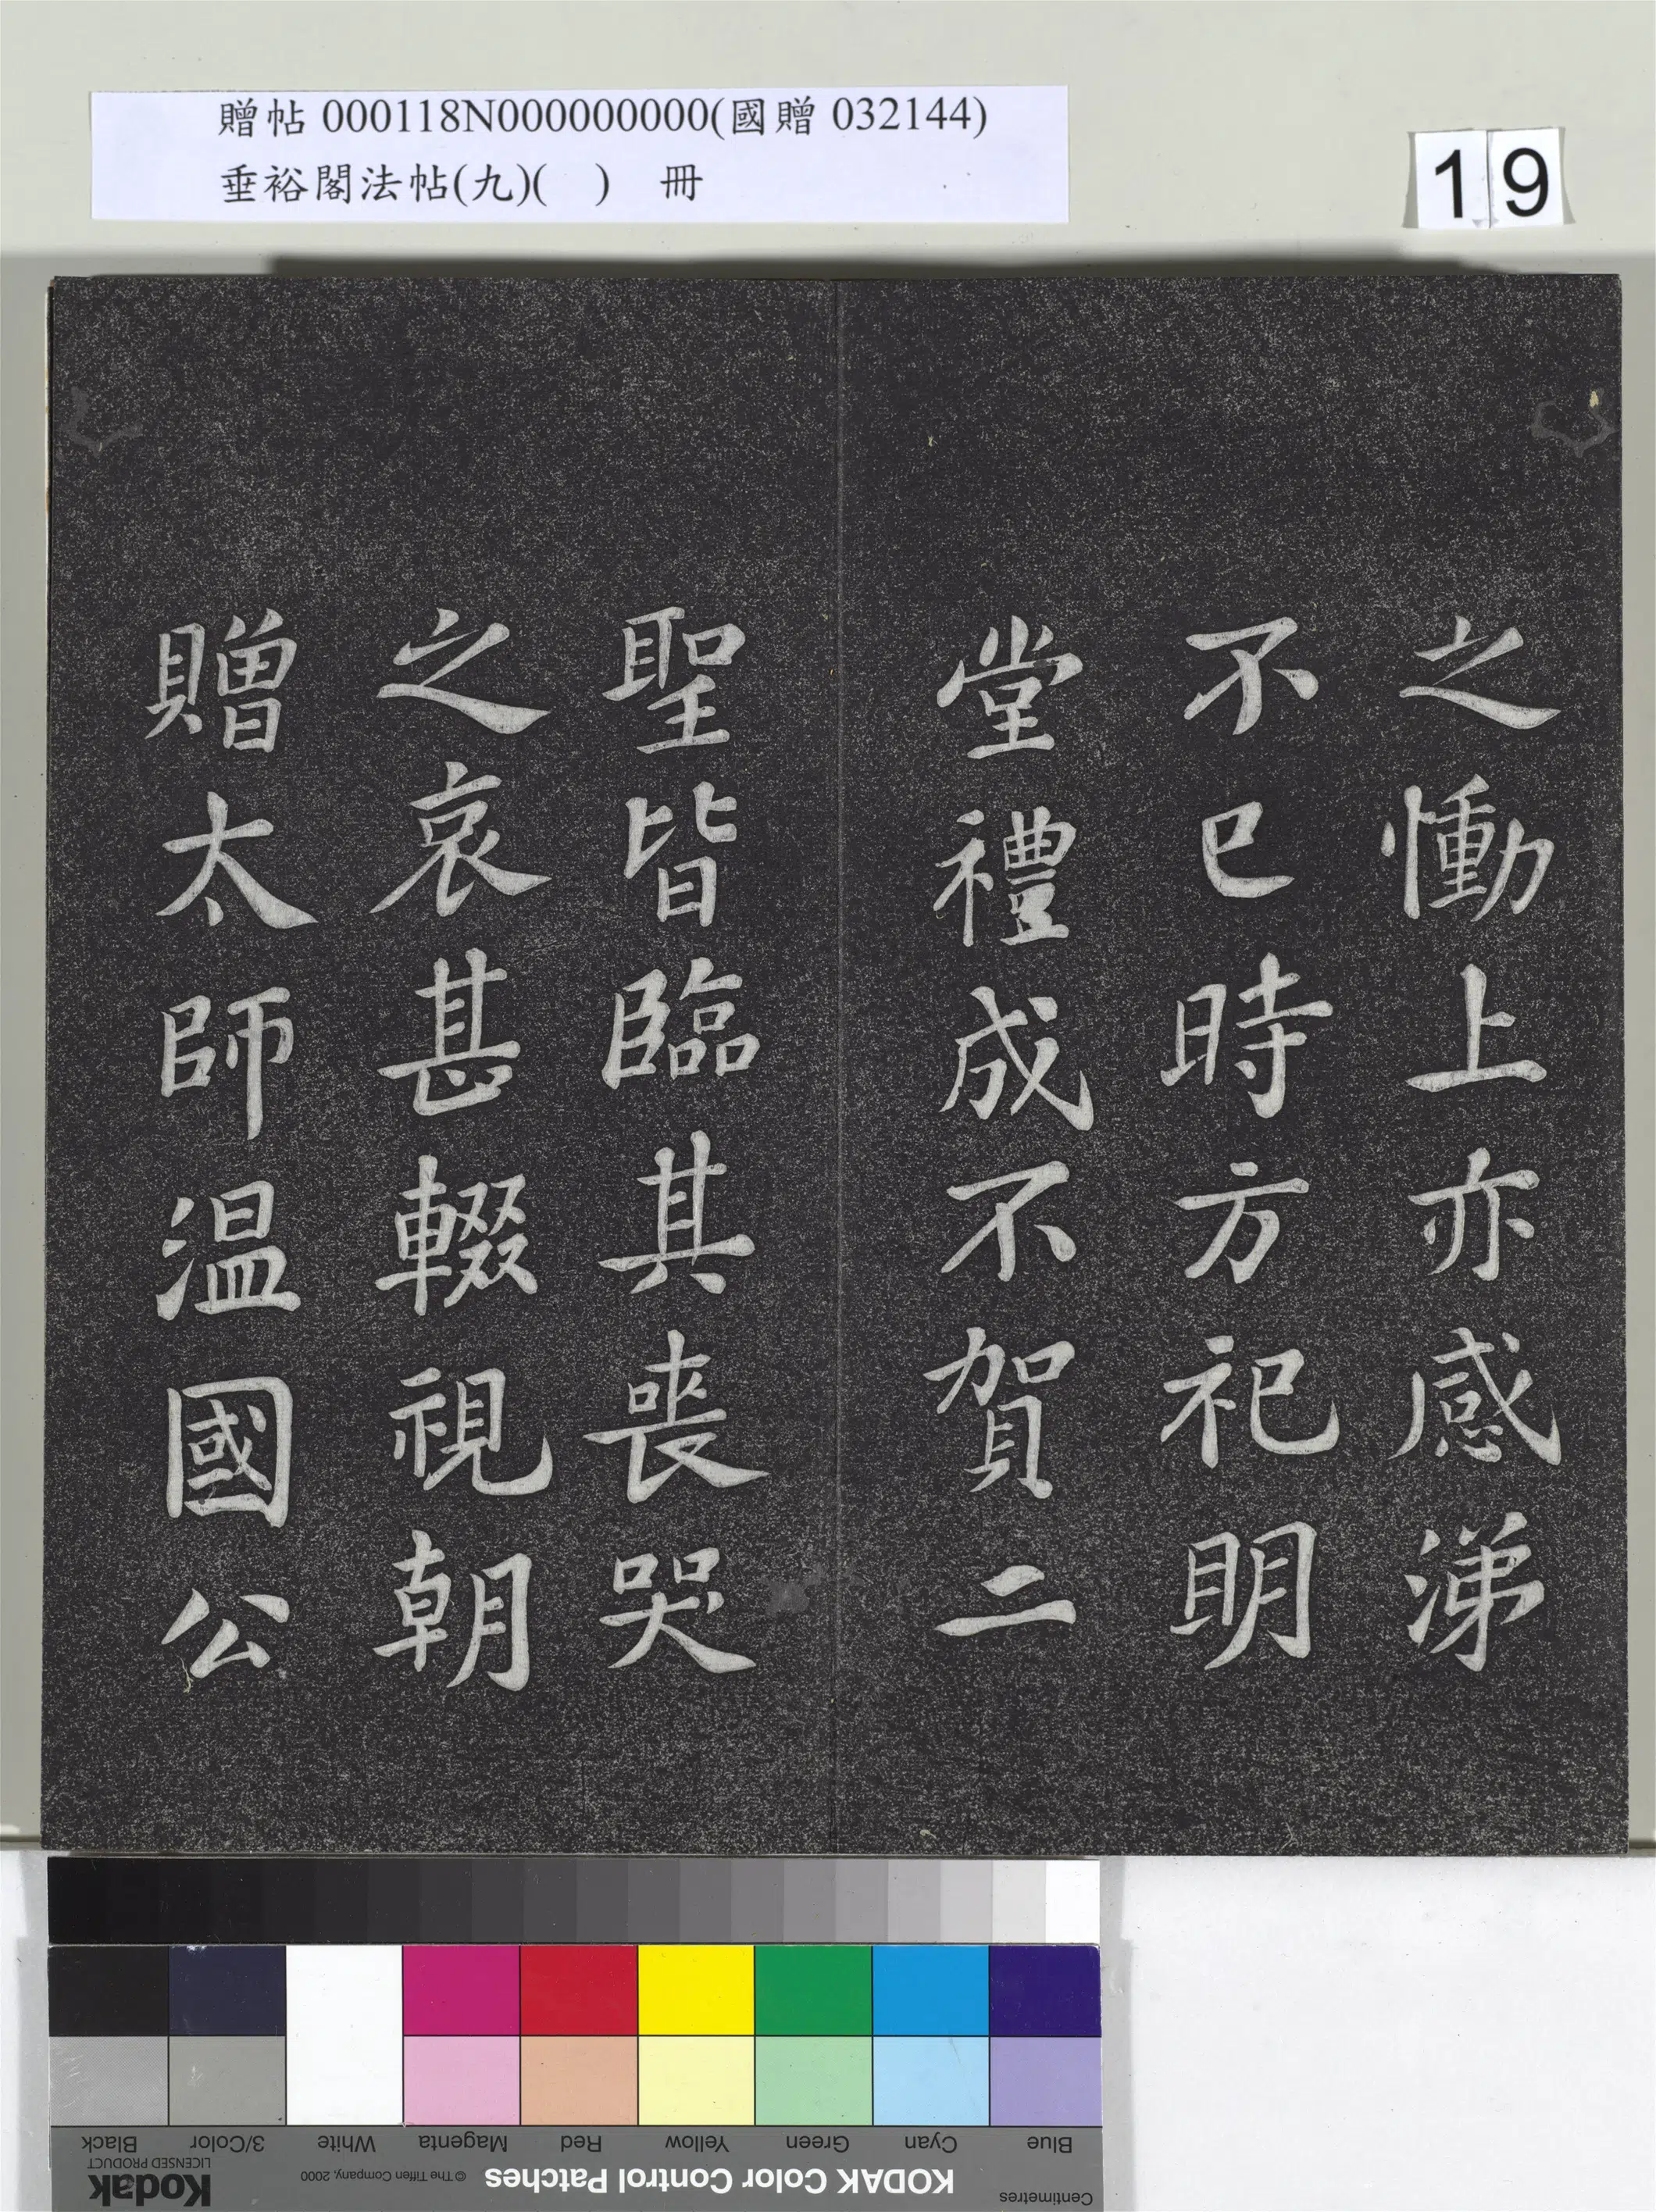 贈帖 000118N000000000(國贈 032144)
垂裕閣法帖(九)( ) 冊
19
之慟上亦感涕
不已時方祀明
堂禮成不賀二
聖皆臨其喪哭
之哀甚輟視朝
贈太師温國公
Black 3/Color White Magenta Red Yellow Green Cyan Blue
Kodak
LICENSED PRODUCT
© The Tiffen Company, 2000
KODAK Color Control Patches
Centimetres